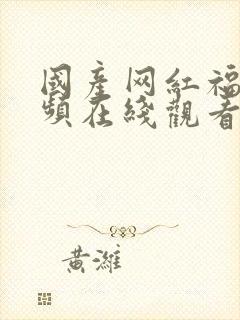 國產网紅福
頻在綫觀看
黃濰